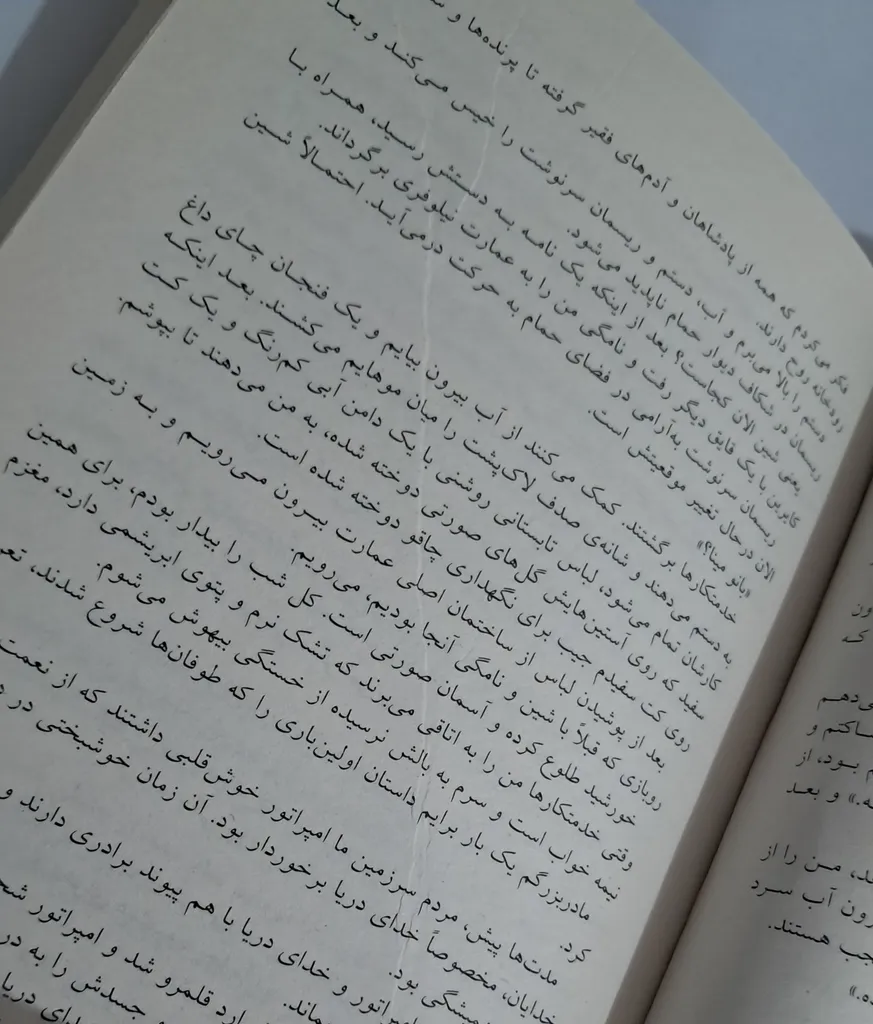 فکر می‌کردم که همه از پادشاهان و آدم‌های فقیر گرفته تا پرنده‌ها و
رودخانه روح دارند.
دستم را بالا می‌برم و آب، دستم و ریسمان سرنوشت را خیس می‌کند و بعد
ریسمان در شکاف دیوار حمام ناپدید می‌شود.
یعنی شین الان کجاست؟ بعد از اینکه یک نامه به دستش رسید، همراه با
کایرین با یک قایق دیگر رفت و نامگی من را به عمارت نیلوفری برگرداند.
ریسمان سرنوشت به‌آرامی در فضای حمام به حرکت درمی‌آید. احتمالاً شین
الان درحال تغییر موقعیتش است.
«بانو مینا؟»
خدمتکارها برگشتند. کمک می‌کنند از آب بیرون بیایم و یک فنجان چای داغ
به دستم می‌دهند و شانه‌ی صدف لاک‌پشت را میان موهایم می‌کشند. بعد اینکه
کارشان تمام می‌شود، لباس تابستانی روشنی با یک دامن آبی کم‌رنگ و یک کت
سفید که روی آستین‌هایش گل‌های صورتی دوخته شده، به من می‌دهند تا بپوشم.
روی کت سفیدم جیب برای نگهداری چاقو دوخته شده است.
بعد از پوشیدن لباس از ساختمان اصلی عمارت بیرون می‌رویم و به زمین
روبازی که قبلاً با شین و نامگی آنجا بودیم، می‌رویم.
خورشید طلوع کرده و آسمان صورتی است. کل شب را بیدار بودم، برای همین
وقتی خدمتکارها من را به اتاقی می‌برند که تشک نرم و پتوی ابریشمی دارد، مغزم
نیمه خواب است و سرم به بالش نرسیده از خستگی بیهوش می‌شوم.
مادربزرگم یک بار برایم داستان اولین‌باری را که طوفان‌ها شروع شدند،
کرد.
مدت‌ها پیش، مردم سرزمین ما امپراتور خوش‌قلبی داشتند که از نعمت
خدایان، مخصوصاً خدای دریا برخوردار بود. آن زمان خوشبختی در
همیشگی بود.
و خدای دریا با هم پیوند برادری دارند و
قلمرو شد و امپراتور
جسدش را به
دریا
ون
که
ی‌دهم
ساکتم و
م بود، از
و بعد
من را از
رون آب سرد
جب هستند.